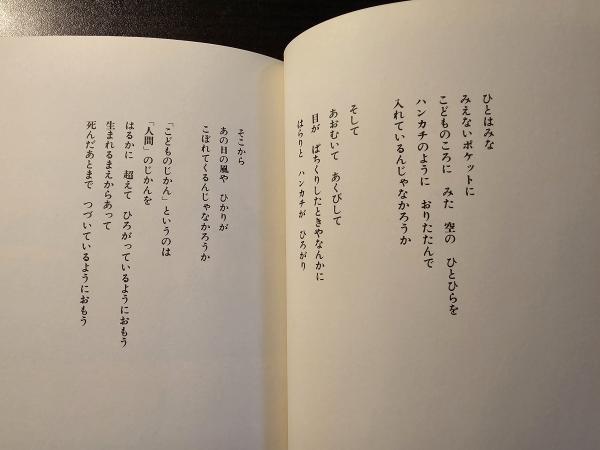 ひとはみな
みえないポケットに
こどものころに みた 空の ひとひらを
ハンカチのように おりたたんで
入れているんじゃなかろうか
そして
あおむいて あくびして
目が ぱちくりしたときやなんかに
はらりと ハンカチが ひろがり
そこから
あの日の風や ひかりが
こぼれてくるんじゃなかろうか
「こどものじかん」というのは
「人間」のじかんを
はるかに 超えて ひろがっているようにおもう
生まれるまえからあって
死んだあとまで つづいているようにおもう